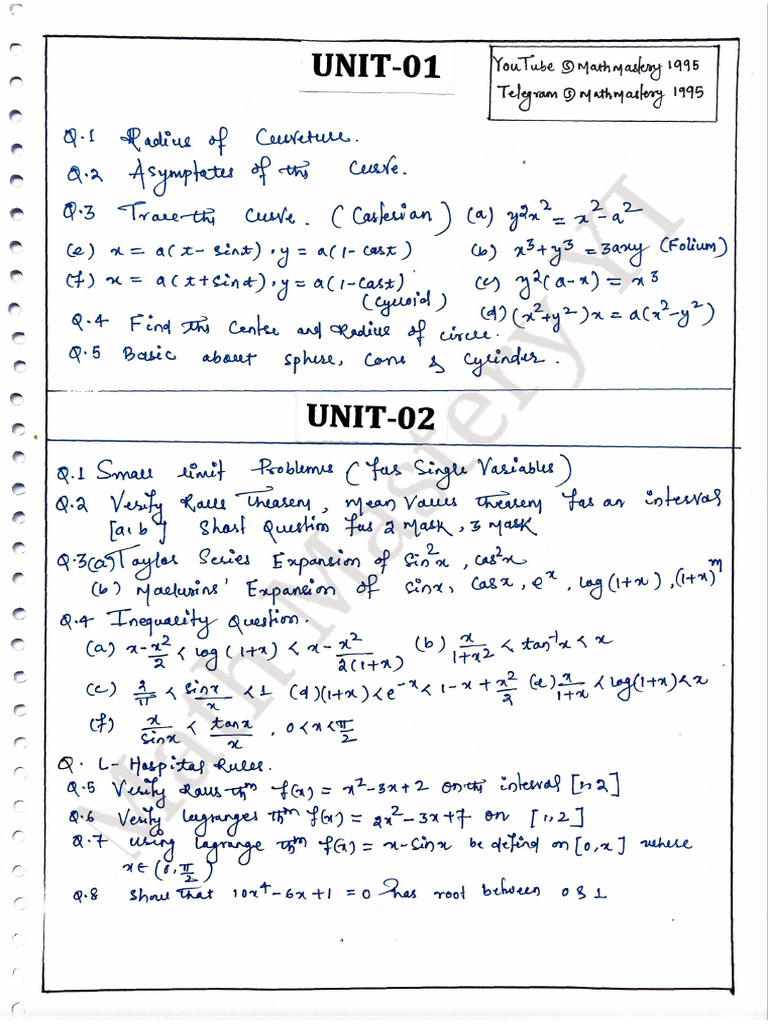 UNIT-01
YouTube @Mathmastery 1995
Telegram @mathmastery 1995
Q.1 Radius of Curveture.
Q.2 Asymptates of the Curve.
Q.3 Trace the Curve. (Castesian) (a) y²x² = x² - a²
(e) x = a(t - sint), y = a(1 - cost) (b) x³ + y³ = 3axy (Folium)
(f) x = a(t + sint), y = a(1 - cost) (c) y²(a-x) = x³
(Cycloid) (d) (x² + y²)x = a(x² - y²)
Q.4 Find the Center and Radius of circle.
Q.5 Basic about sphere, Cone & Cylinder.
UNIT-02
Q.1 Small limit Problems (for Single Variables)
Q.2 Verify Rolls Theorem, Mean Values theorem for an interval
[a, b] Short Question for 2 Mark, 3 Mark
Q.3(a) Taylor Series Expansion of sin²x, cos²x
(b) Maclurins' Expansion of sinx, cosx, eˣ, log(1+x), (1+x)ᵐ
Q.4 Inequality Question.
(a) x - x²/2 < log(1+x) < x - x²/2(1+x) (b) x/1+x² < tan⁻¹x < x
(c) 2/π < sinx/x < 1 (d) (1+x) < e⁻ˣ < 1 - x + x²/2 (e) x/1+x < log(1+x) < x
(f) x/sinx < tanx/x, 0 < x < π/2
Q. L-Hospital Rules.
Q.5 Verify Rolls thm f(x) = x² - 3x + 2 on the interval [1, 2]
Q.6 Verify lagranges thm f(x) = 2x² - 3x + 7 on [1, 2]
Q.7 Using lagrange thm f(x) = x - sinx be defind on [0, x] where
x ∈ (0, π/2)
Q.8 Show that 10x⁴ - 6x + 1 = 0 has root between 0 & 1
Math Mastery YT